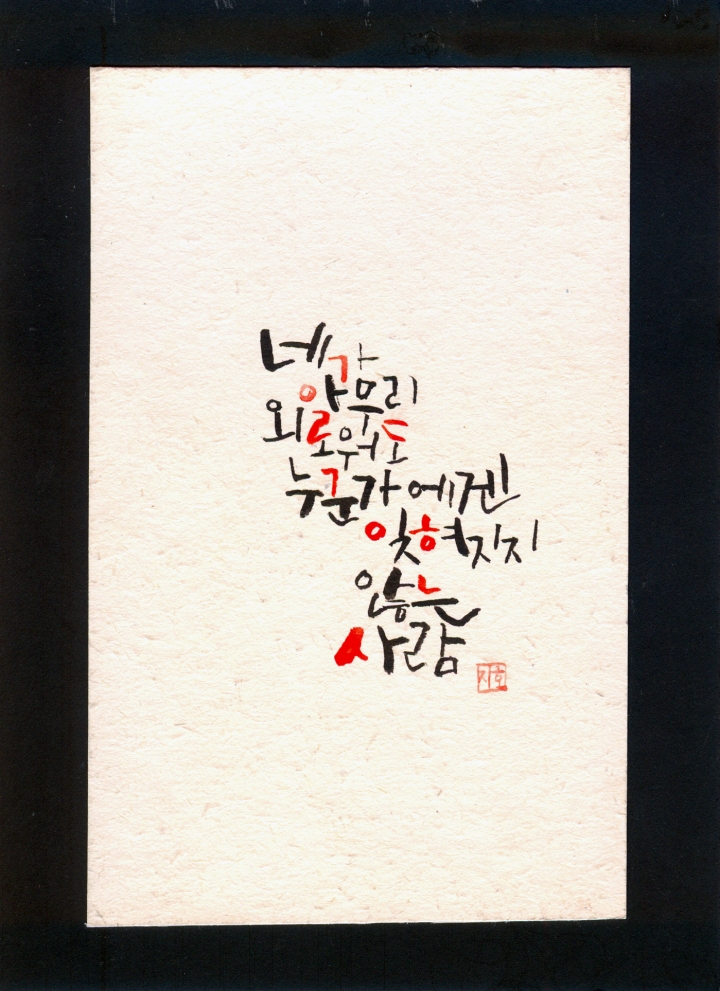 네가
아무리
외로워도
누군가에겐
잊혀지지
않는
사람
지호